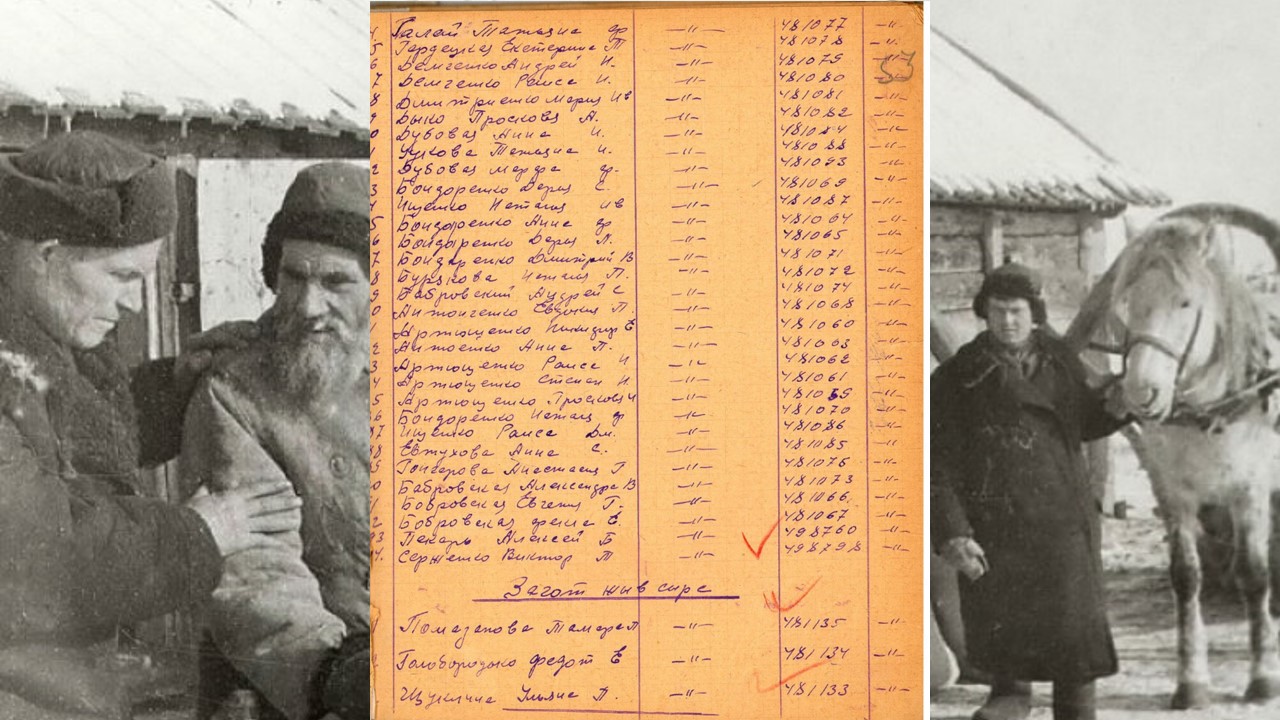 Галай Татьяна Ф —"— 481077 —"—
5 Гордецкая Екатерина Т 481078 —"—
53
6 Демченко Андрей И. —"— 481079
7 Демченко Раиса И. —"— 481080
8 Дмитриенко Мария Ив —"— 481081 —"—
Дыко Просковя А. —"— 481082 —"—
0 Дубовая Анна И. —"— 481084 —"—
Татьяна И. —"— 481088 —"—
2 Дубовая Марфа Ф. —"— 481093 —"—
3 Бондоренко Дария С. —"— 481069 —"—
Ищенко Наталия Ив —"— 481087 —"—
5 Бондаренко Анна Ф —"— 481064 —"—
6 Бондаренко Дария Л. —"— 481065 —"—
7 Бондаренко Дмитрий В —"— 481071 —"—
8 Бурякова Наталия П. —"— 481072 —"—
9 Бабровский Андрей С —"— 481074 —"—
0 Антонченко Евдокия П —"— 481068 —"—
Артющенко Е —"— 481060 —"—
2 Анна П. —"— 481063 —"—
3 Артющенко Раиса И —"— 481062 —"—
4 Артющенко Степан И. —"— 481061 —"—
5 Артющенко Просковя И —"— 481059 —"—
6 Бондоренко Наталия Ф —"— 481070 —"—
7 Ищенко Раиса Дм. —"— 481086 —"—
8 Евтухова Анна С. —"— 481085 —"—
9 Гончерова Анастасия Г —"— 481075 —"—
0 Бабровская Александра В —"— 481073 —"—
1 Бобровская Евгения Г. —"— 481066 —"—
2 Бобровская Е. —"— 481067 —"—
93 Пекарь Алексей Б —"— 498760 —"—
4. Сержненко Виктор Т —"— 498798 —"—
Загот жив сырс
Помазанова Тамара П —"— 481135 —"—
Голобородько Федот Е —"— 481134 —"—
Щуклина Ульяна П. —"— 481133 —"—